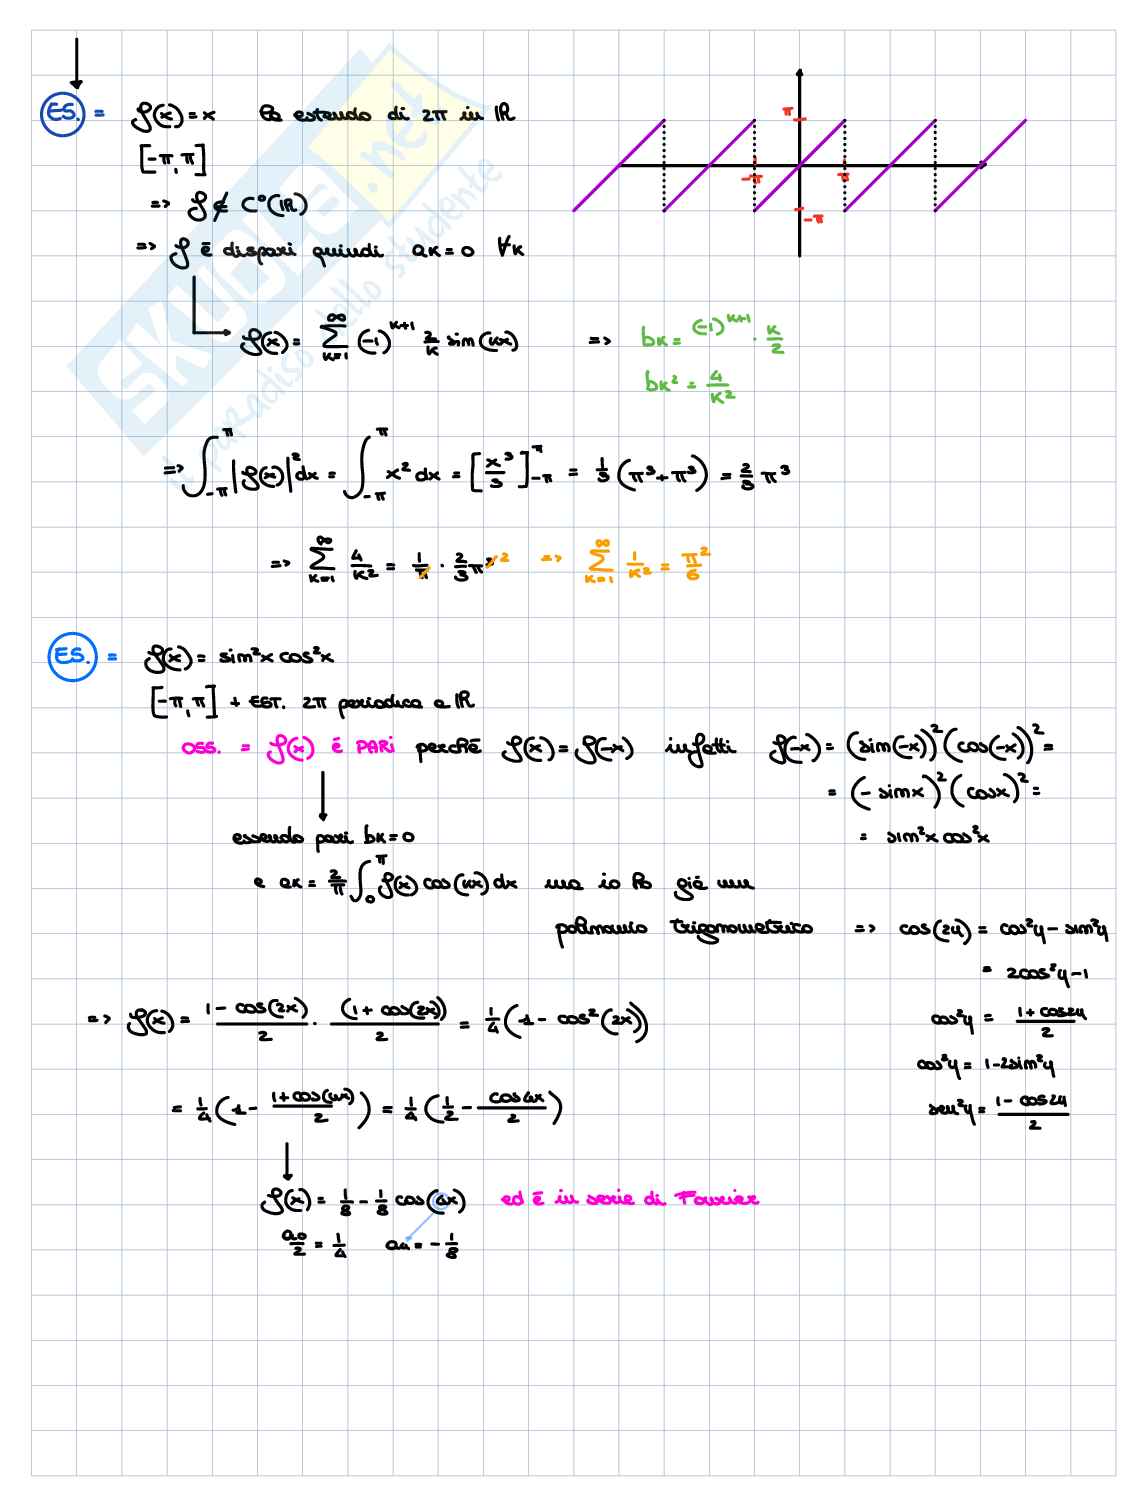 ES. = f(x) = x la estendo di 2π in ℝ
[-π, π]
=> f ∉ C°(ℝ)
=> f è dispari quindi aₖ = 0 ∀k
π
-π
π
-π
f(x) = ∑_{k=1}^{∞} (-1)^{k+1} 2/k sin(kx) => bₖ = (-1)^{k+1} · k/2
bₖ² = 4/k²
=> ∫_{-π}^{π} |f(x)|² dx = ∫_{-π}^{π} x² dx = [x³/3]_{-π}^{π} = 1/3 (π³ + π³) = 2/3 π³
=> ∑_{k=1}^{∞} 4/k² = 1/π · 2/3 π³ ² => ∑_{k=1}^{∞} 1/k² = π²/6
ES. = f(x) = sin²x cos²x
[-π, π] + EST. 2π periodica a ℝ
OSS. = f(x) è PARI perché f(x) = f(-x) infatti f(-x) = (sin(-x))² (cos(-x))² =
= (- sin x)² (cos x)² =
= sin²x cos²x
essendo pari bₖ = 0
e aₖ = 2/π ∫_{0}^{π} f(x) cos(kx) dx ma io ho già un
polinomio trigonometrico => cos(2y) = cos²y - sin²y
= 2cos²y - 1
=> f(x) = (1 - cos(2x))/2 · (1 + cos(2x))/2 = 1/4 (1 - cos²(2x))
cos²y = (1 + cos2y)/2
cos²y = 1 - 2sin²y
= 1/4 (1 - (1 + cos(4x))/2) = 1/4 (1/2 - cos4x/2)
sen²y = (1 - cos2y)/2
f(x) = 1/8 - 1/8 cos(4x) ed è in serie di Fourier
a₀/2 = 1/4 a₄ = - 1/8
SKUOLA.net
il paradiso dello studente